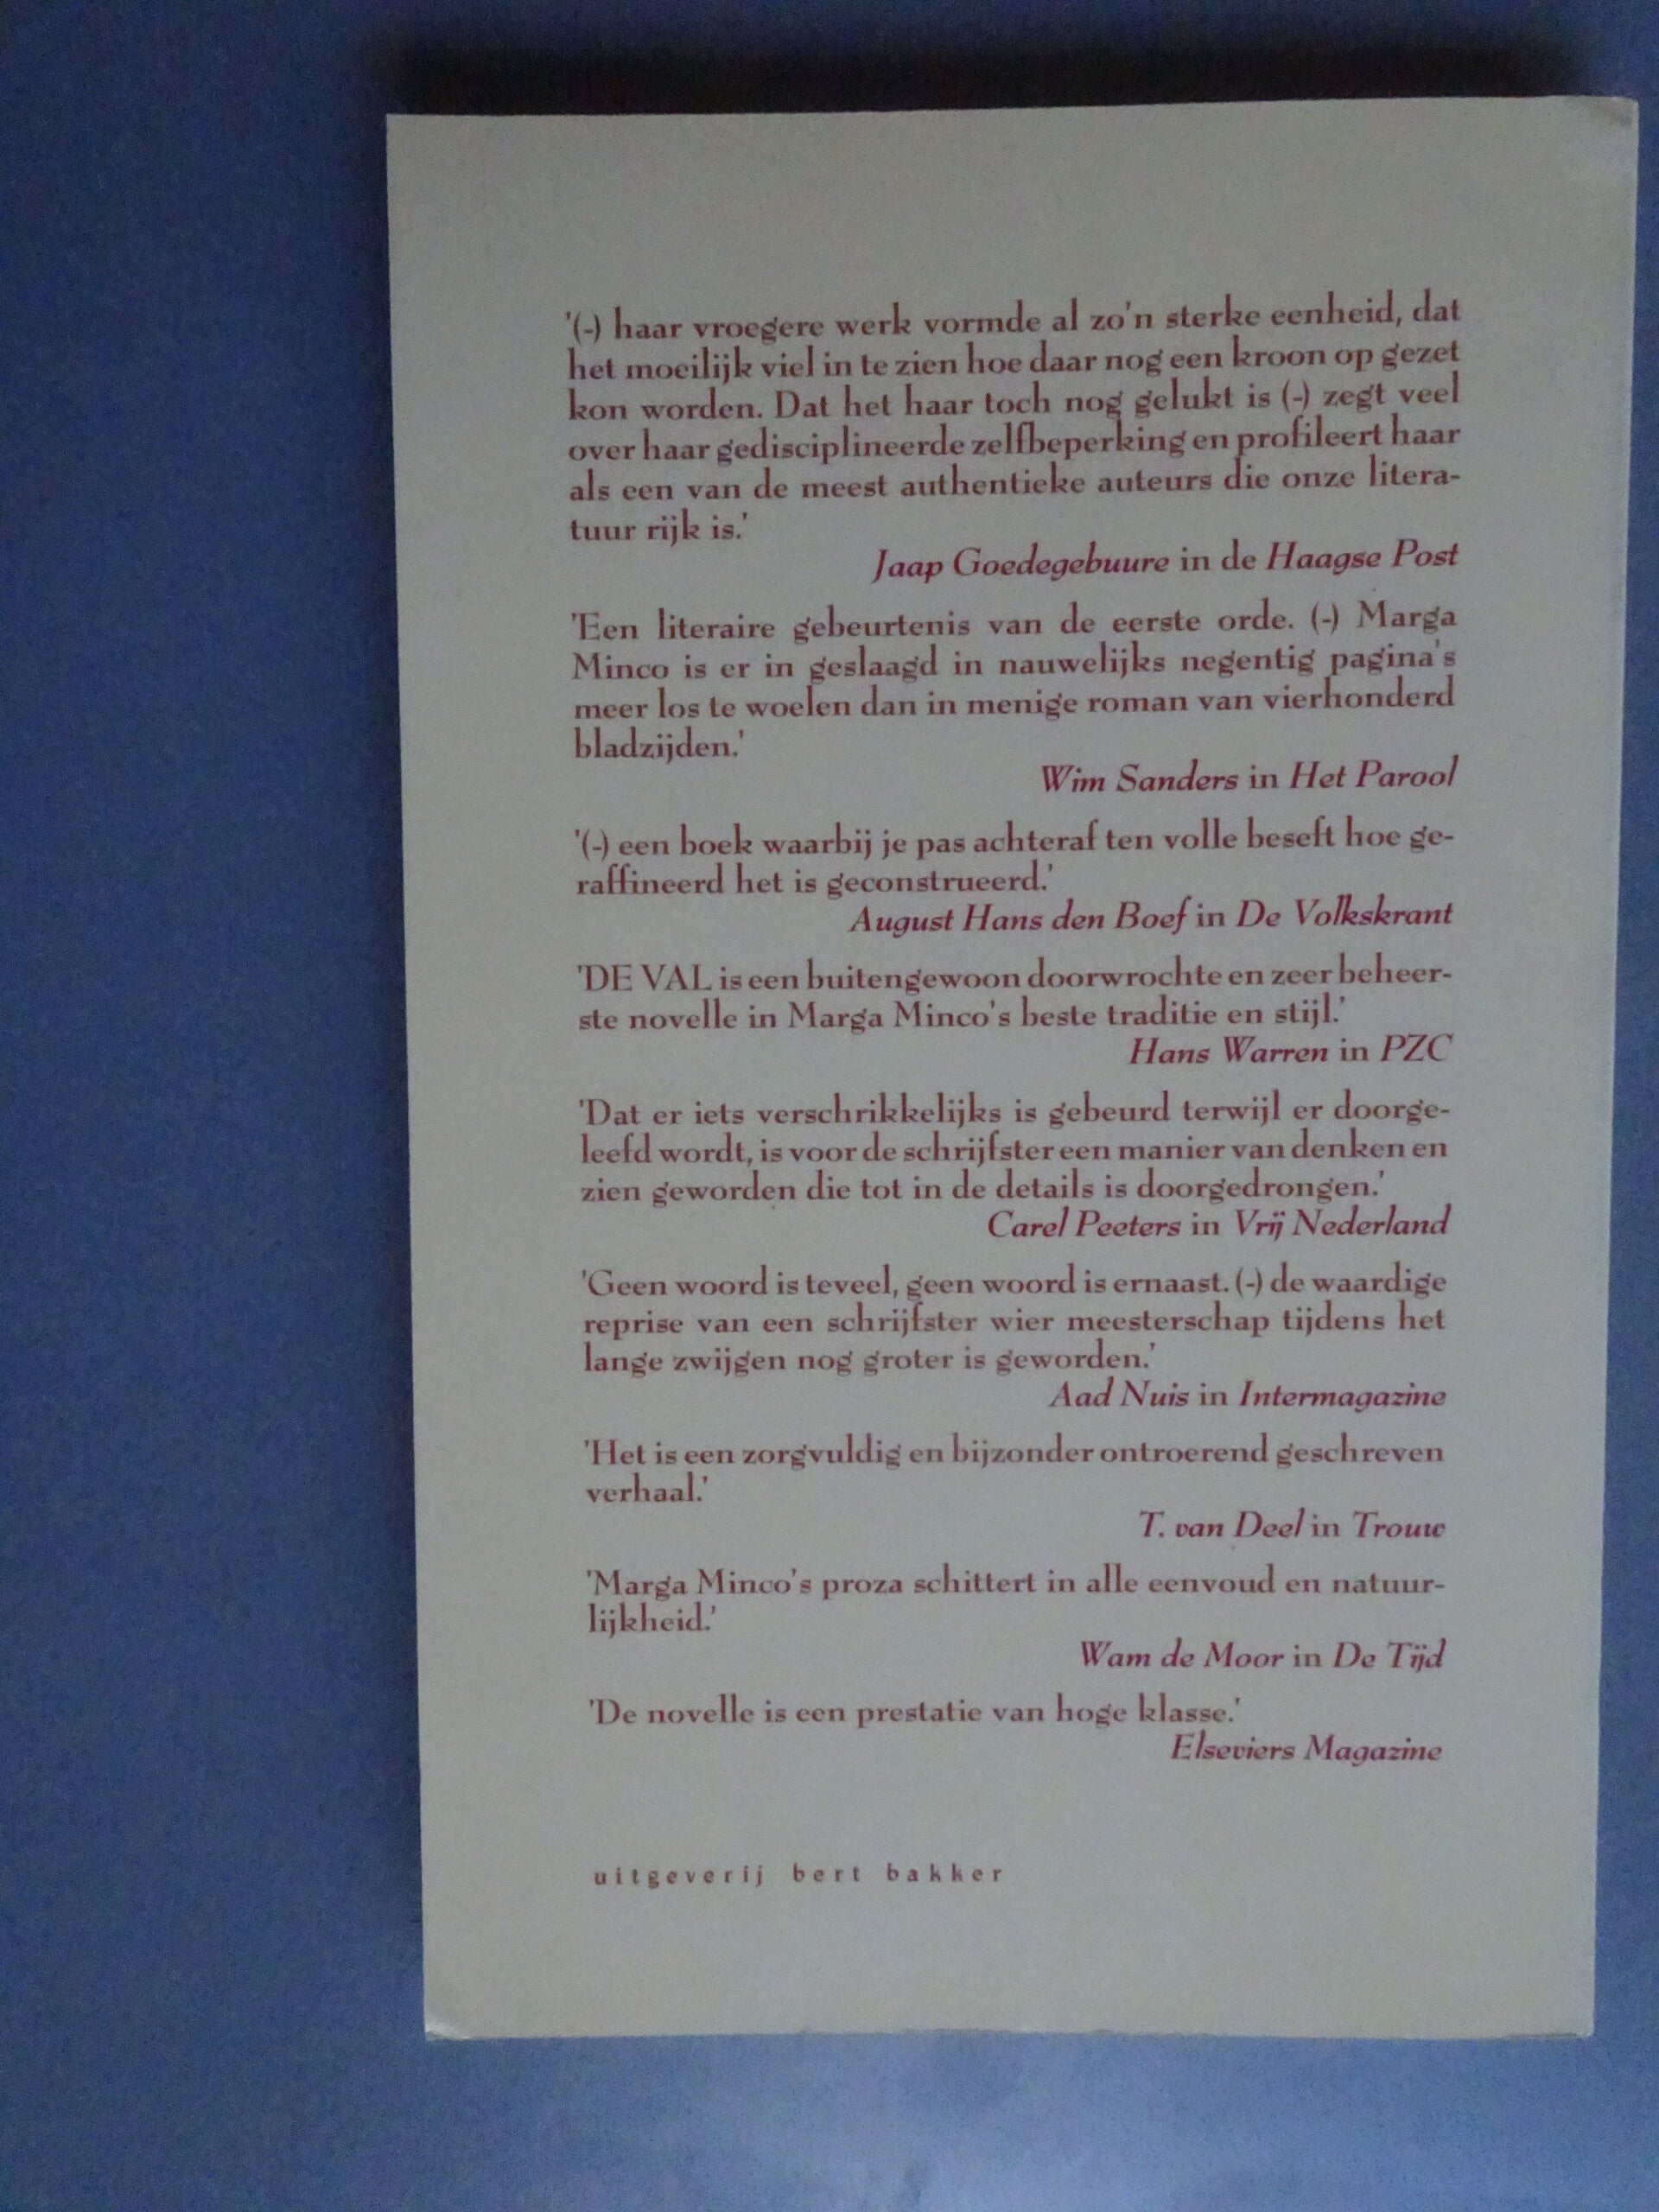 '(-) haar vroegere werk vormde al zo'n sterke eenheid, dat
het moeilijk viel in te zien hoe daar nog een kroon op gezet
kon worden. Dat het haar toch nog gelukt is (-) zegt veel
over haar gedisciplineerde zelfbeperking en profileert haar
als een van de meest authentieke auteurs die onze litera-
tuur rijk is.'
Jaap Goedegebuure in de Haagse Post
'Een literaire gebeurtenis van de eerste orde. (-) Marga
Minco is er in geslaagd in nauwelijks negentig pagina's
meer los te woelen dan in menige roman van vierhonderd
bladzijden.'
Wim Sanders in Het Parool
'(-) een boek waarbij je pas achteraf ten volle beseft hoe ge-
raffineerd het is geconstrueerd.'
August Hans den Boef in De Volkskrant
'DE VAL is een buitengewoon doorwrochte en zeer beheer-
ste novelle in Marga Minco's beste traditie en stijl.'
Hans Warren in PZC
'Dat er iets verschrikkelijks is gebeurd terwijl er doorge-
leefd wordt, is voor de schrijfster een manier van denken en
zien geworden die tot in de details is doorgedrongen.'
Carel Peeters in Vrij Nederland
'Geen woord is teveel, geen woord is ernaast. (-) de waardige
reprise van een schrijfster wier meesterschap tijdens het
lange zwijgen nog groter is geworden.'
Aad Nuis in Intermagazine
'Het is een zorgvuldig en bijzonder ontroerend geschreven
verhaal.'
T. van Deel in Trouw
'Marga Minco's proza schittert in alle eenvoud en natuur-
lijkheid.'
Wam de Moor in De Tijd
'De novelle is een prestatie van hoge klasse.'
Elseviers Magazine
uitgeverij bert bakker